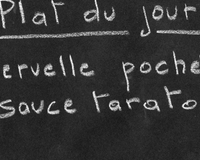 Plat du jour
ervelle poche
sauce tarato